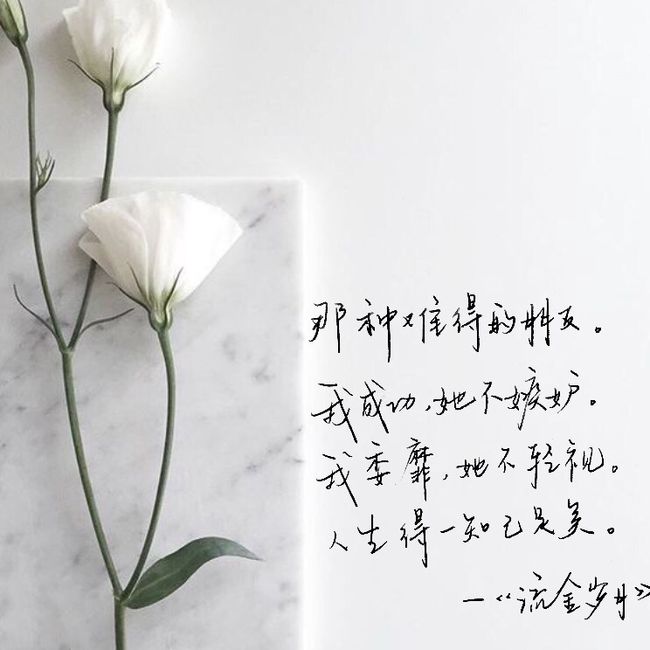 那种难得的朋友。
我成功,她不嫉妒。
我委靡,她不轻视。
人生得一知己足矣。
—《流金岁月》